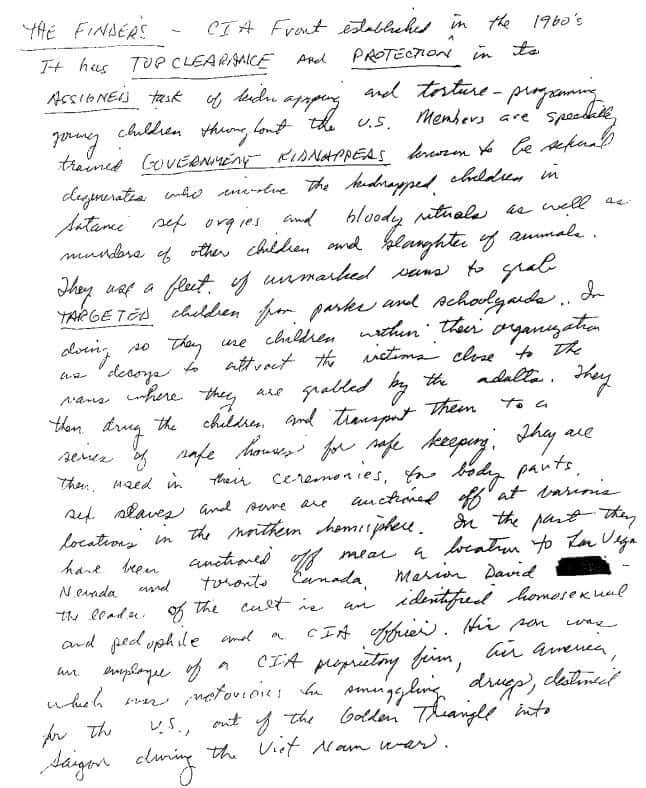 THE FINDERS - CIA Front established in the 1960's
It has TOP CLEARANCE and PROTECTION in its
ASSIGNED task of kidnapping and torture-programming
young children throughout the U.S. Members are specially
trained GOVERNMENT KIDNAPPERS known to be sexual
degenerates who involve the kidnapped children in
Satanic sex orgies and bloody rituals as well as
murders of other children and slaughter of animals.
They use a fleet of unmarked vans to grab
TARGETED children from parks and schoolyards. In
doing so they use children within their organization
as decoys to attract the victims close to the
vans where they are grabbed by the adults. They
then drug the children and transport them to a
series of safe houses for safe keeping. They are
then used in their ceremonies, for body parts,
sex slaves and some are auctioned off at various
locations in the northern hemisphere. In the past they
have been auctioned off near a location to Las Vegas
Nevada and Toronto Canada. Marion David -
the leader of the cult is an identified homosexual
and pedophile and a CIA officer. His son was
an employee of a CIA proprietory firm, Air America,
which was notorious for smuggling drugs, destined
for the U.S., out of the Golden Triangle into
Saigon during the Viet Nam war.